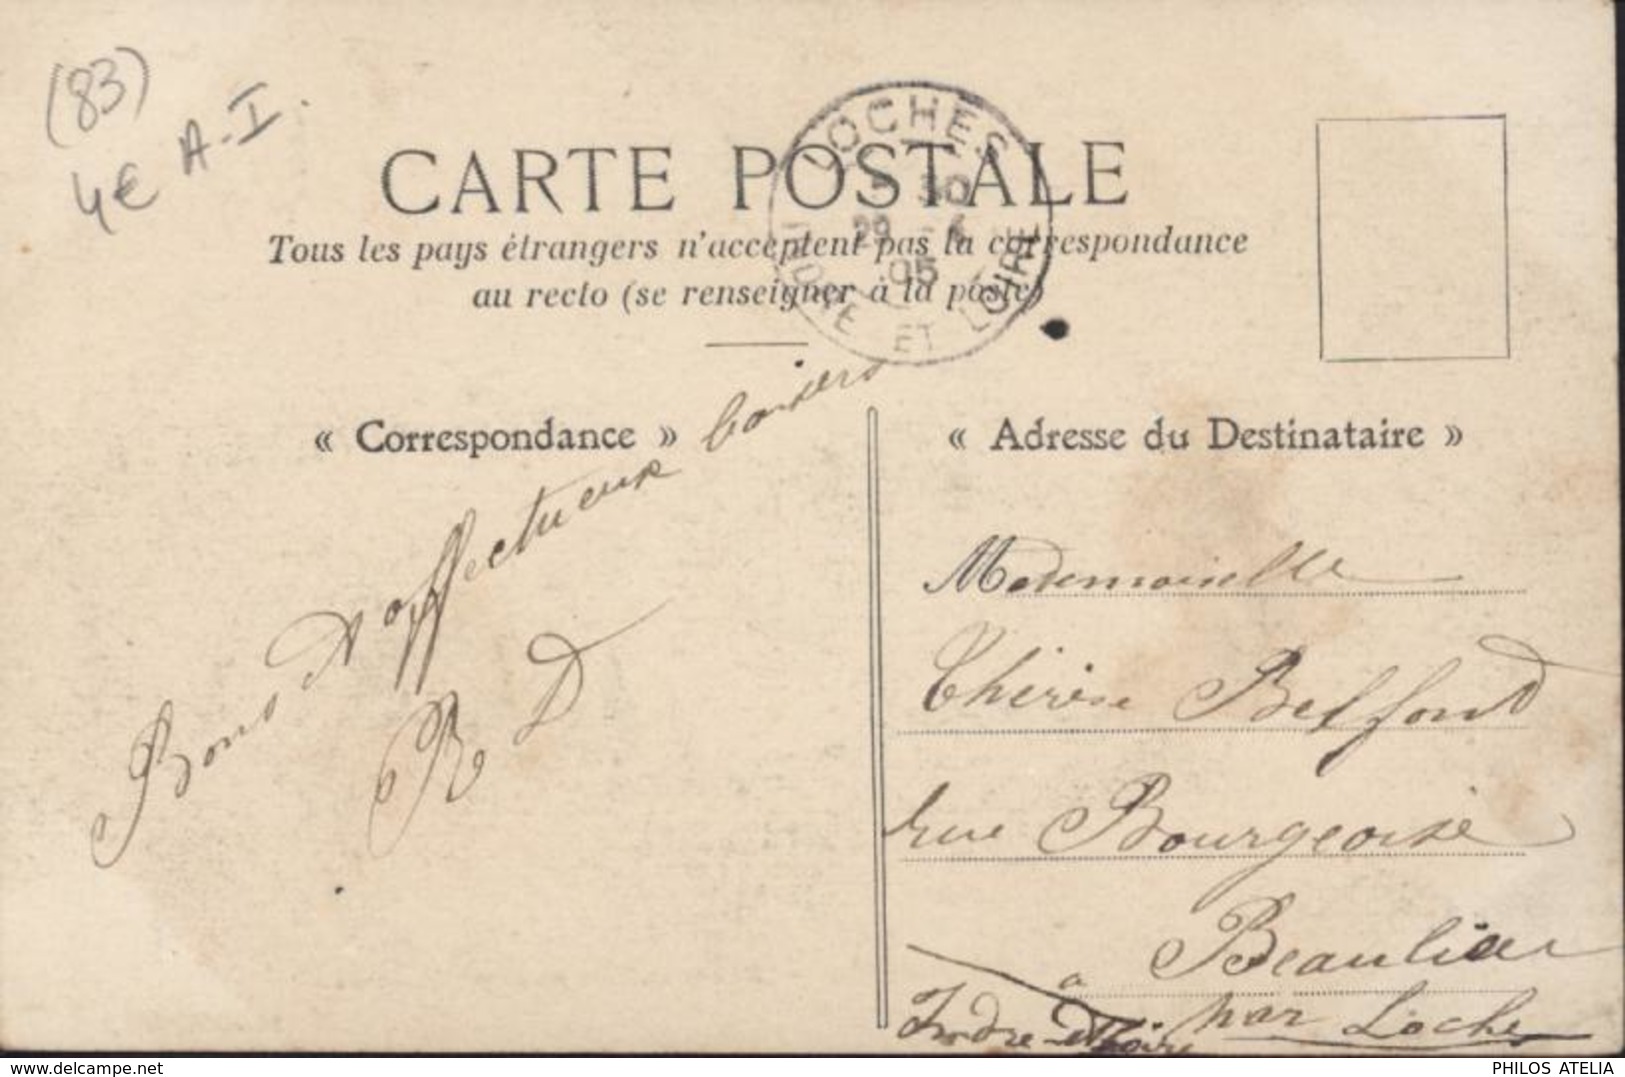 (83)
4€ A-I.
CARTE POSTALE
LOCHES
30
29 - 6
05
INDRE ET LOIRE
Tous les pays étrangers n'acceptent pas la correspondance
au recto (se renseigner à la poste)
« Correspondance »
Bons & affectueux baisers
R D
« Adresse du Destinataire »
Mademoiselle
Thérèse Belfond
rue Bourgeoise
à Beaulieu
par Loches
Indre-et-Loire
PHILOS ATELIA